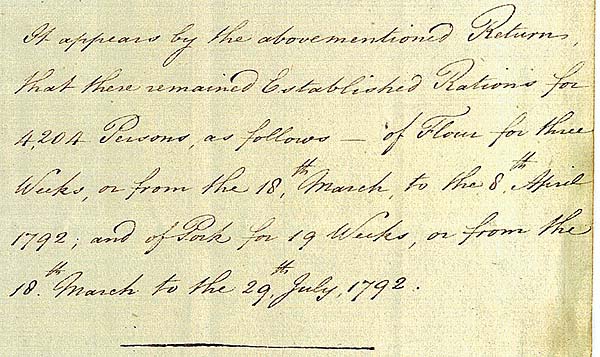 It appears by the abovementioned Return,
that there remained Established Rations for
4,204 Persons, as follows — of Flour for three
Weeks, or from the 18.th March, to the 8.th April
1792; and of Pork for 19 Weeks, or from the
18.th March to the 29.th July, 1792.